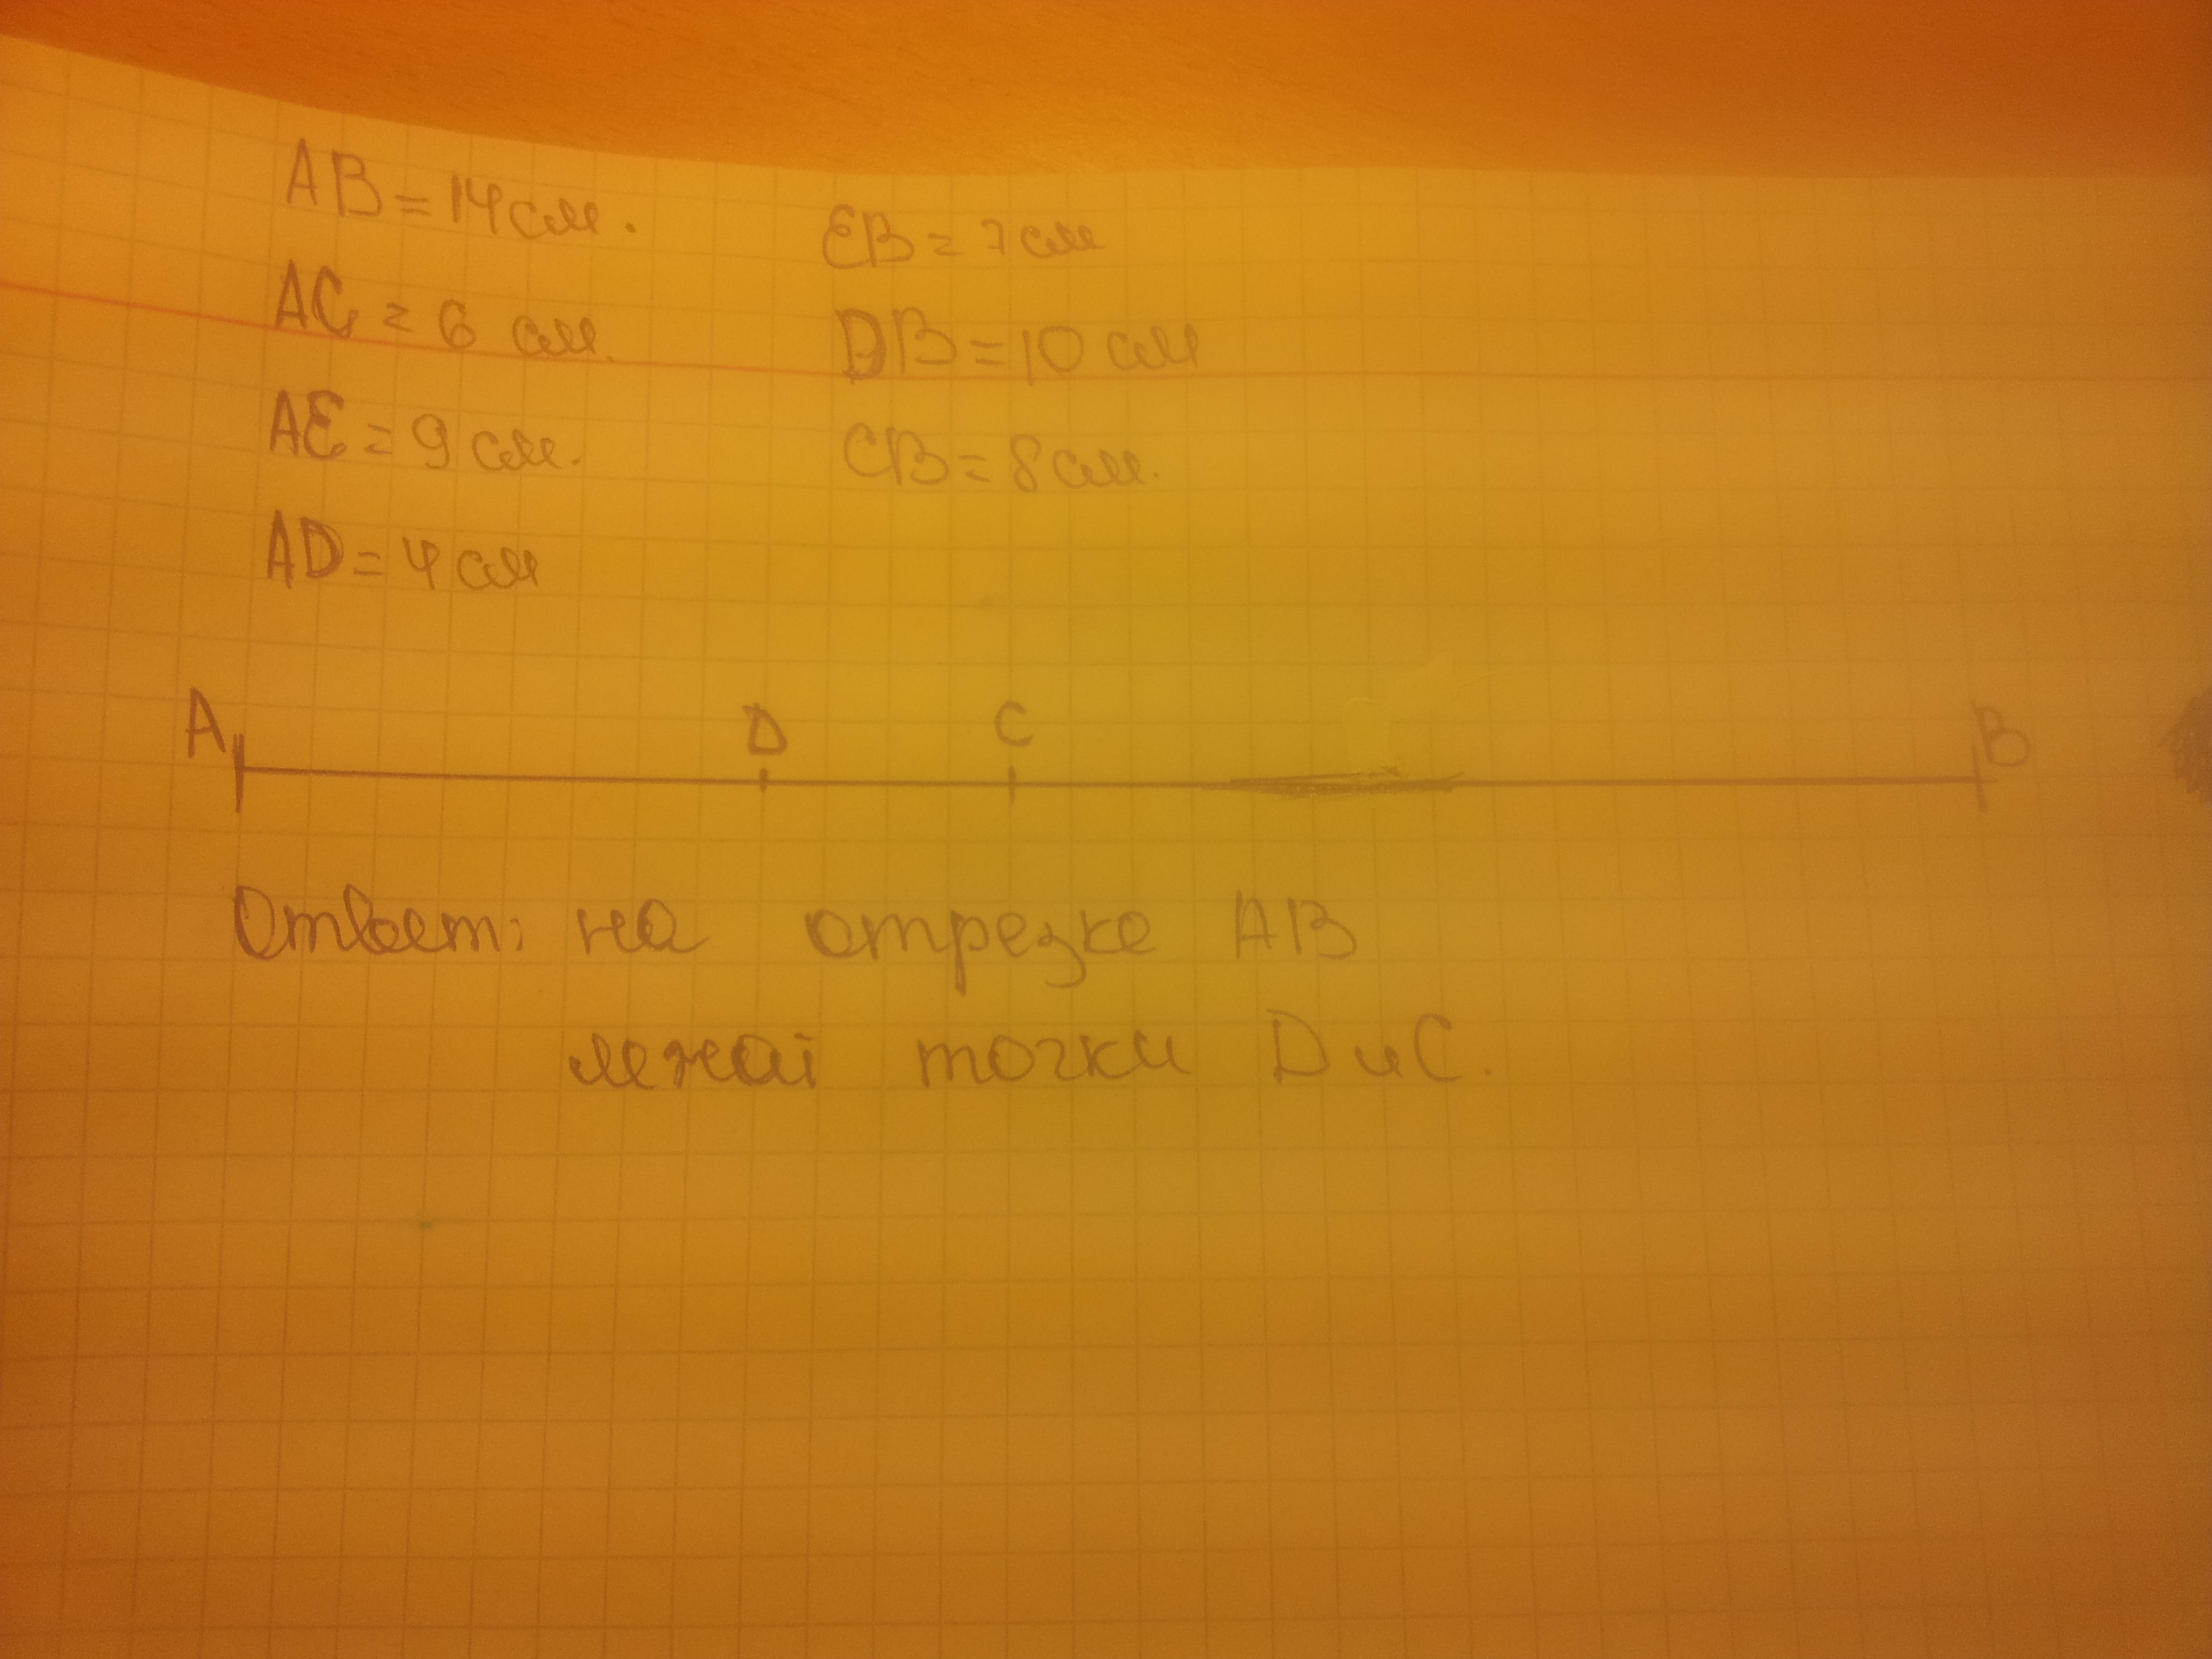 AB = 14 см.
AC = 6 см.
AE = 9 см.
AD = 4 см
EB = 7 см
DB = 10 см
CB = 8 см.
A D C B
Ответ: на отрезке AB
лежат точки D и C.